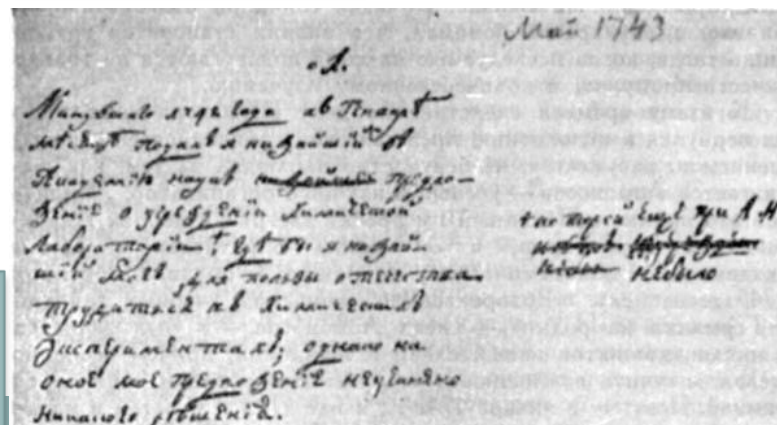 Май 1743
1.
Минувшаго 1742 года въ Генварѣ
мѣсяцѣ подалъ я нижайшiй въ
Академiю наукъ предло-
женiе о учрежденiи Химической
Лабораторiи, гдѣ бы я нижай-
шiй могъ для пользы отечества
трудиться въ Химическихъ
Экспериментахъ; однако на
оное мое предложенiе неучинено
никакого рѣшенiя.
+ которой еще при А Н
небыло